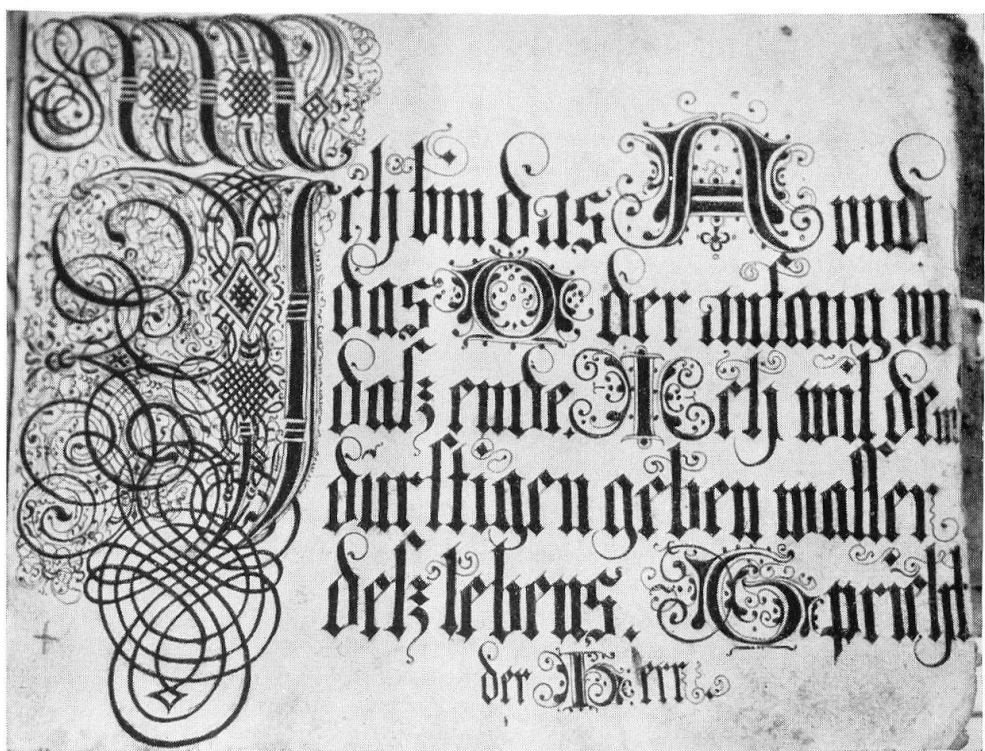 Ich bin das A vnd
das O der anfang vn
daß ende. Ich will dem
durstigen geben wasser
deß lebens. Spricht
der Herr.